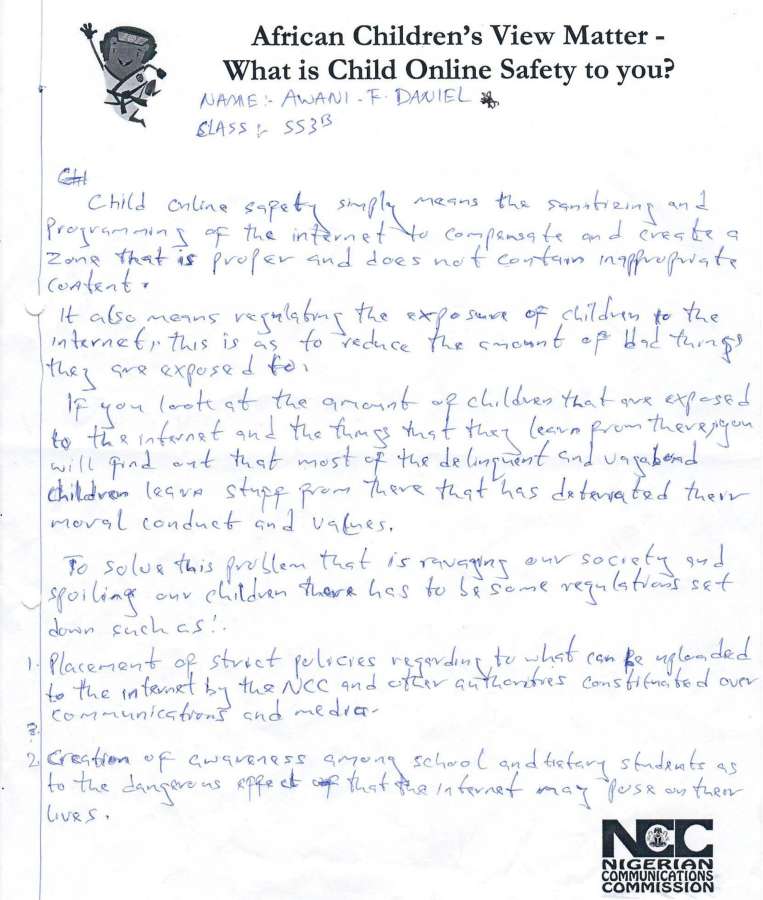 African Children's View Matter -
What is Child Online Safety to you?
NAME:- AWANI - F. DANIEL
CLASS:- SS3B
Child online safety simply means the sanitizing and
Programming of the internet to compensate and create a
Zone that is proper and does not contain inappropriate
content.
It also means regulating the exposure of children to the
internet, this is as to reduce the amount of bad things
they are exposed to.
If you look at the amount of children that are exposed
to the internet and the things that they learn from there, you
will find out that most of the delinquent and vagabond
children learn stuff from there that has deterrated their
moral conduct and values.
To solve this problem that is ravaging our society and
spoiling our children there has to be some regulations set
down such as:-
1. Placement of strict policies regarding to what can be uploaded
to the internet by the NCC and other authorities constituated over
communications and media.
2.
2. Creation of awareness among school and tietary students as
to the dangerous effect of that the internet may pose on their
lives.
NCC
NIGERIAN
COMMUNICATIONS
COMMISSION